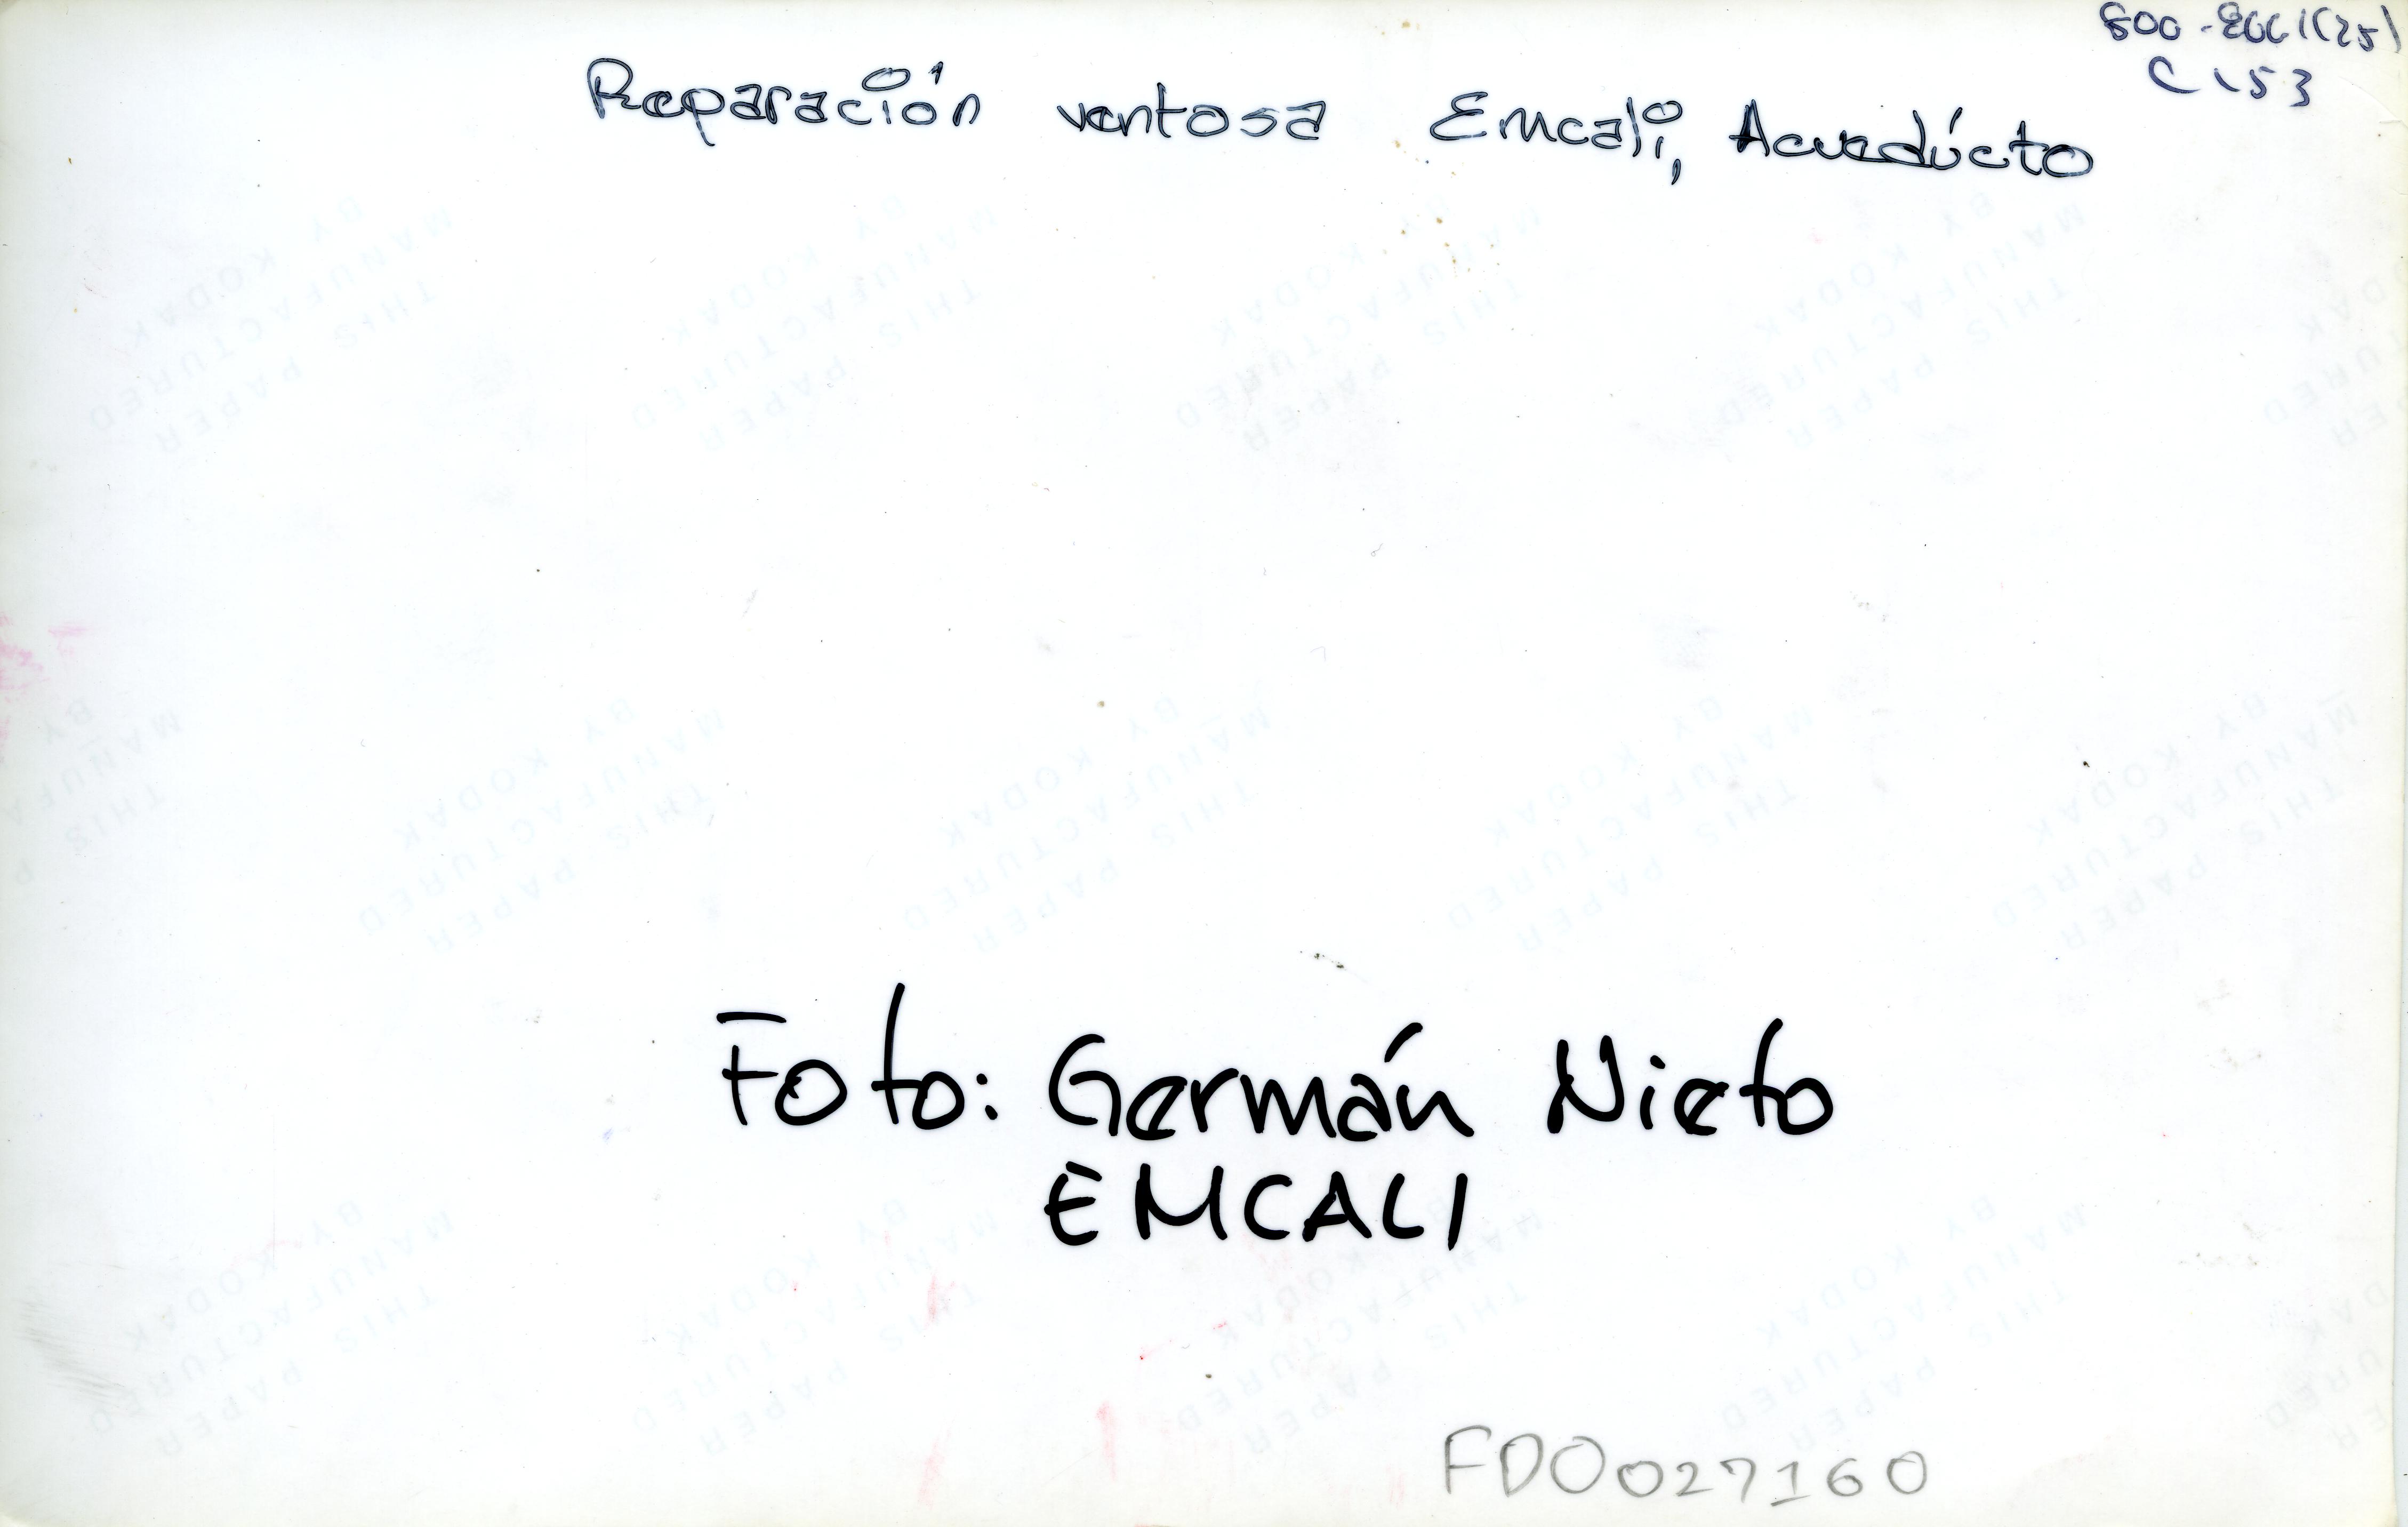 800-2001(25)
C 153
Reparación ventosa Emcali, Acuedúcto
Foto: Germán Nieto
EMCALI
FDO027160
THIS PAPER
MANUFACTURED
BY KODAK